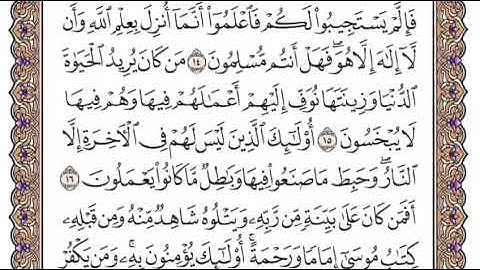 فَإِلَّمْ يَسْتَجِيبُوا۟ لَكُمْ فَٱعْلَمُوٓا۟ أَنَّمَآ أُنزِلَ بِعِلْمِ ٱللَّهِ وَأَن
لَّآ إِلَٰهَ إِلَّا هُوَۖ فَهَلْ أَنتُم مُّسْلِمُونَ ١٤ مَن كَانَ يُرِيدُ ٱلْحَيَوٰةَ
ٱلدُّنْيَا وَزِينَتَهَا نُوَفِّ إِلَيْهِمْ أَعْمَٰلَهُمْ فِيهَا وَهُمْ فِيهَا
لَا يُبْخَسُونَ ١٥ أُو۟لَٰٓئِكَ ٱلَّذِينَ لَيْسَ لَهُمْ فِى ٱلْءَاخِرَةِ إِلَّا
ٱلنَّارُۖ وَحَبِطَ مَا صَنَعُوا۟ فِيهَا وَبَٰطِلٌ مَّا كَانُوا۟ يَعْمَلُونَ ١٦
أَفَمَن كَانَ عَلَىٰ بَيِّنَةٍ مِّن رَّبِّهِۦ وَيَتْلُوهُ شَاهِدٌ مِّنْهُ وَمِن قَبْلِهِۦ
كِتَٰبُ مُوسَىٰٓ إِمَامًا وَرَحْمَةًۚ أُو۟لَٰٓئِكَ يُؤْمِنُونَ بِهِۦۚ وَمَن يَكْفُرْ